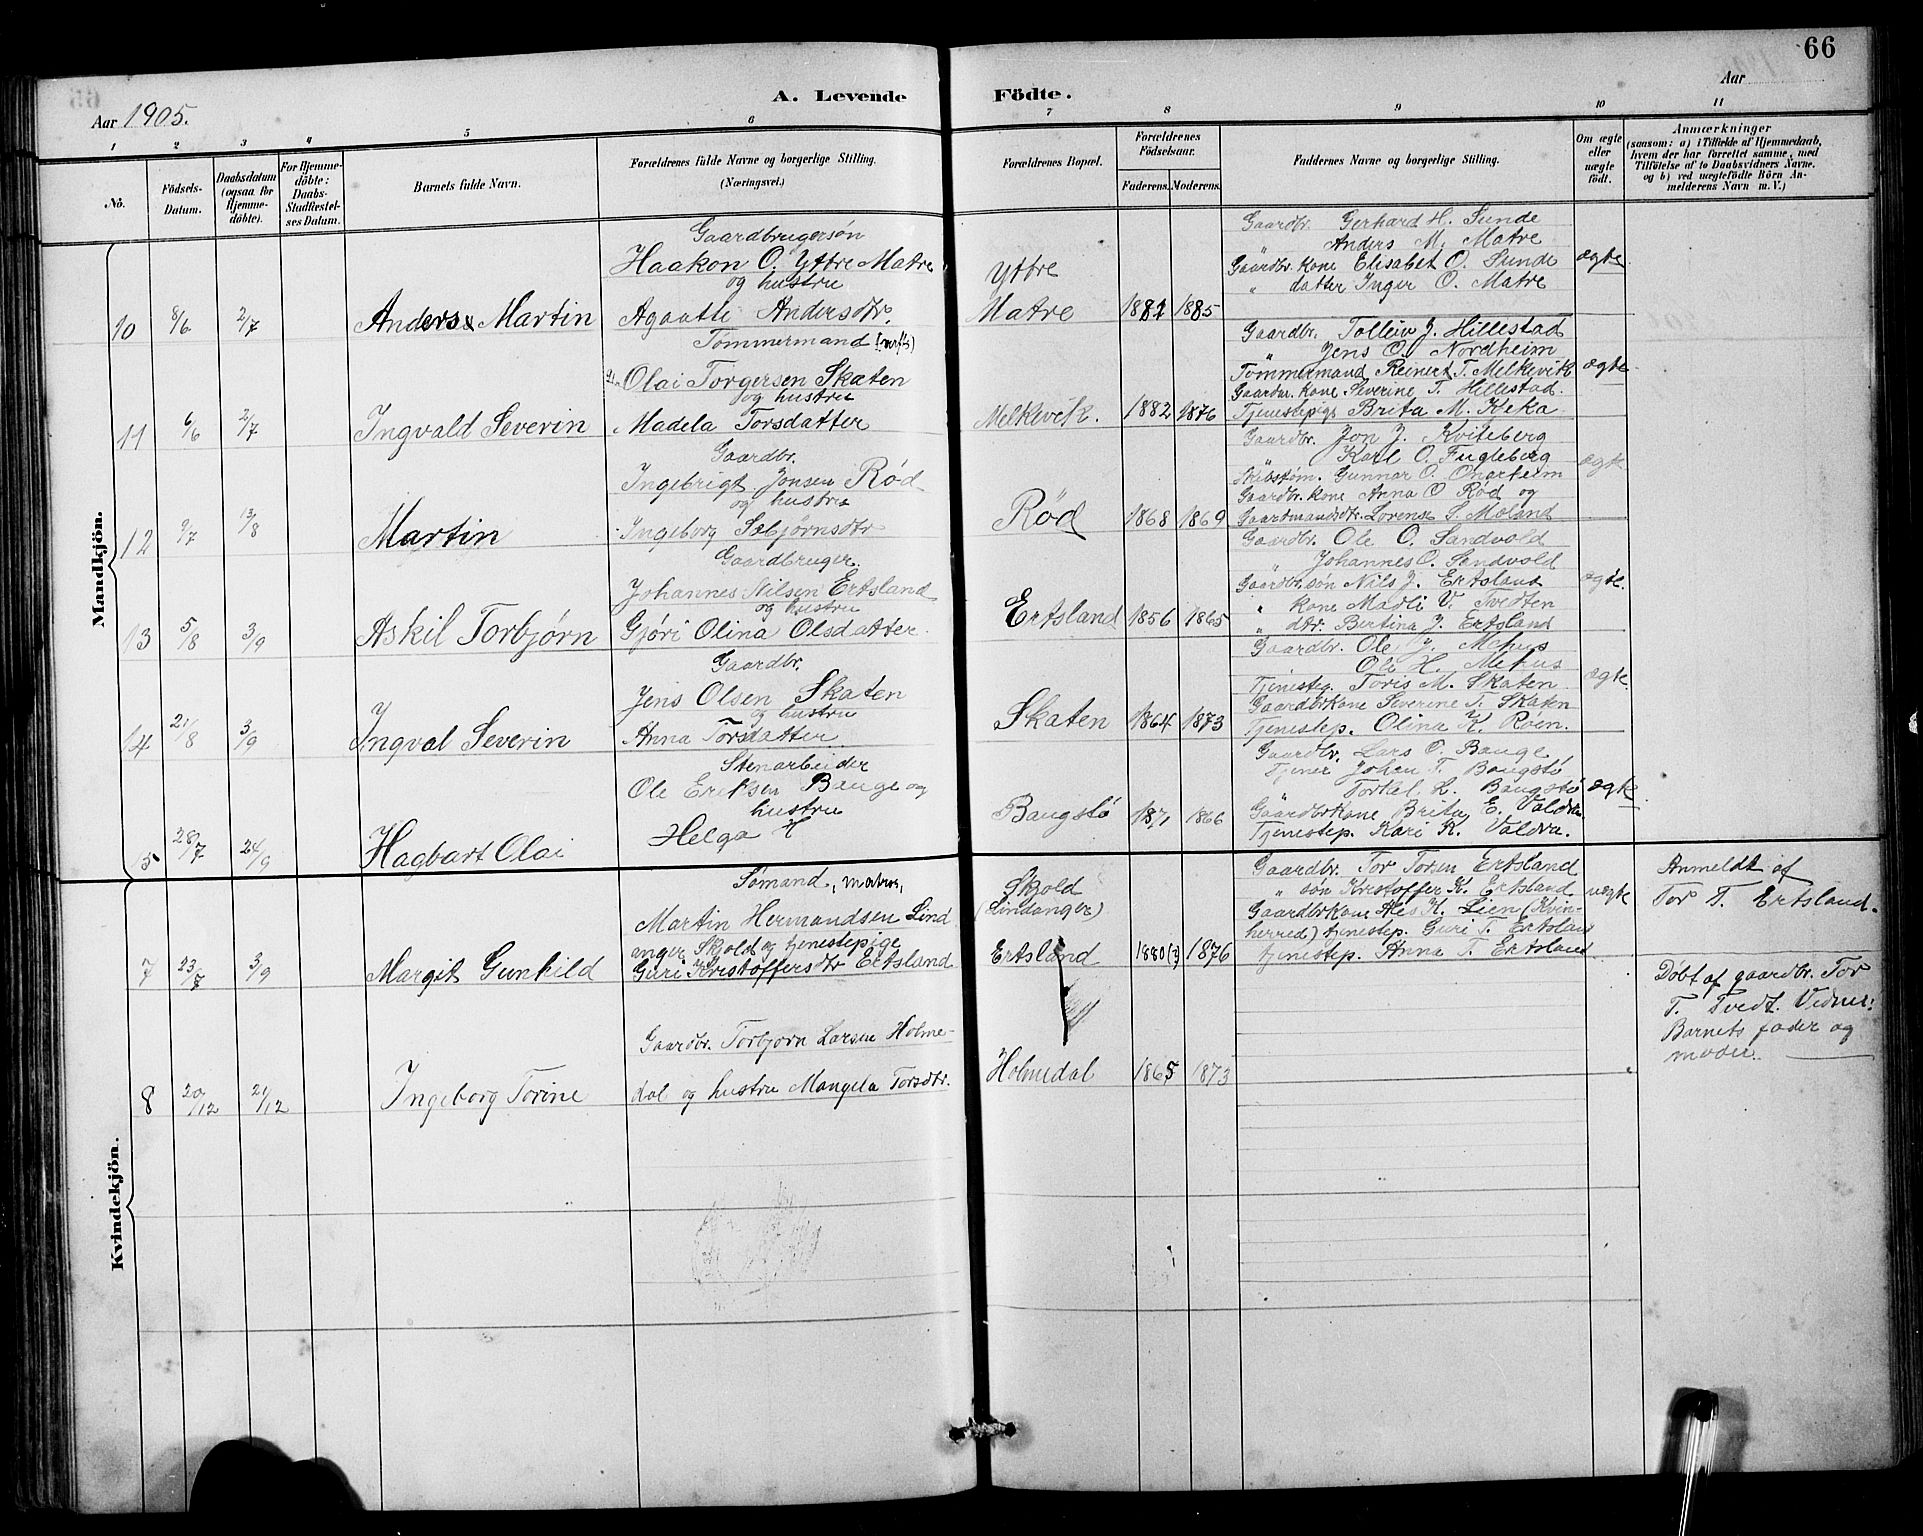 66
Aar 1905.
A. Levende Födte.
Aar
1 2 3 4 5 6 7 8 9 10 11
No.
Födsels-Datum.
Daabsdatum (ogsaa for Hjemmedöbte).
For Hjemmedöbte: Daabs-Stadfæstelses Datum.
Barnets fulde Navn.
Forældrenes fulde Navne og borgerlige Stilling. (Næringsvei.)
Forældrenes Bopæl.
Forældrenes Födselsaar.
Faderens. Moderens.
Faddernes Navne og borgerlige Stilling.
Om ægte eller uægte födt.
Anmærkninger (saasom: a) i Tilfælde af Hjemmedaab, hvem der har forrettet samme, med Tilföielse af to Daabsvidners Navne. og b) ved uægtefödte Börn Anmelderens Navn m. V.)
Mandkjön.
10 8/6 2/7 Anders Martin
Gaardbrugersøn
Haakon O. Yttre Matre
og hustru
Agaate Andersdtr.
Yttre
Matre 1882 1885
Gaardbr. Gerhard H. Sunde
" Anders M. Matre
Gaardbr. kone Elisabet O. Sunde
" datter Inger O. Matre
ægte
11 6/6 2/7 Ingvald Severin
Tømmermand
Olai Torgersen Skaten
og hustru
Madela Torsdatter
Melkevik. 1882 1876
Gaardbr. Tollein J. Hillestad
" Jens O. Nordheim
Tømmermand Reinert T. Melkevik
Gaardbr. kone Severine T. Hillestad.
Tjenestepige Brita M. Keka
ægte
12 9/7 13/8 Martin
Gaardbr.
Ingebrigt Jonsen Rød
og hustru
Ingeborg Sebjørnsdtr
Rød 1868 1869
Gaardbr. Jon J. Kviteberg
" Karl O. Fugleberg
Skibstøm. Gunnar O. Onarheim
Gaardbr. kone Anna O Rød og
Gaardmandsdtr. Lorense S. Moland
ægte
13 5/8 3/9 Askil Torbjørn
Gaardbruger.
Johannes Nilsen Ertsland
og hustru
Gjøri Olina Olsdatter.
Ertsland 1856 1865
Gaardbr. Ole O. Sandvold
" Johannes O. Sandvold
Gaardbr. søn Nils J. Ertsland
" kone Madli V. Tvedten
" dtr. Bertina J. Ertsland
ægte.
14 21/8 3/9 Ingval Severin
Gaardbr.
Jens Olsen Skaten
og hustru
Anna Torsdatter
Skaten 1864 1873
Gaardbr. Ole J. Mehus
Ole H. Mehus
Tjenesteg. Toris M. Skaten
Gaardbrkone Severine T. Skaten
Tjenestep. Olina K. Røen.
ægte.
15 28/7 24/9 Hagbart Olai
Stenarbeider
Ole Eriksen Bauge og
hustru
Helga H
Baugstø 1871 1866
Gaardbr. Lars O. Bauge
Tjener Johan T. Baugstø
" Torkel L. Baugstø
Gaardbrkone Brita E. Valdra
Tjenestep. Kari K. Valdra.
ægte
Kvindekjön.
7 23/7 3/9 Margit Gunhild
Sømand, matros,
Martin Hermandsen Lind
anger Skjold og tjenestepige
Guri Kristoffersdtr Ertsland
Skjold
(Lindanger)
Ertsland 1880(?) 1876
Gaardbr. Tor Torsen Ertsland
" søn Kristoffer K. Ertsland
Gaardbrkone Aes H. Lien (Kvin-
herred) tjenestep. Guri T. Ertsland
tjenestep. Anna T. Ertsland
uægte
Anmeldt af
Tor T. Ertsland.
8 20/12 21/12 Ingeborg Torine
Gaardbr. Torbjørn Larsen Holme-
dal og hustru Mangela Torsdtr.
Holmedal 1865 1873
Døbt af gaardbr. Tor
T. Tvedt. Vidner:
Barnets fader og
moder.